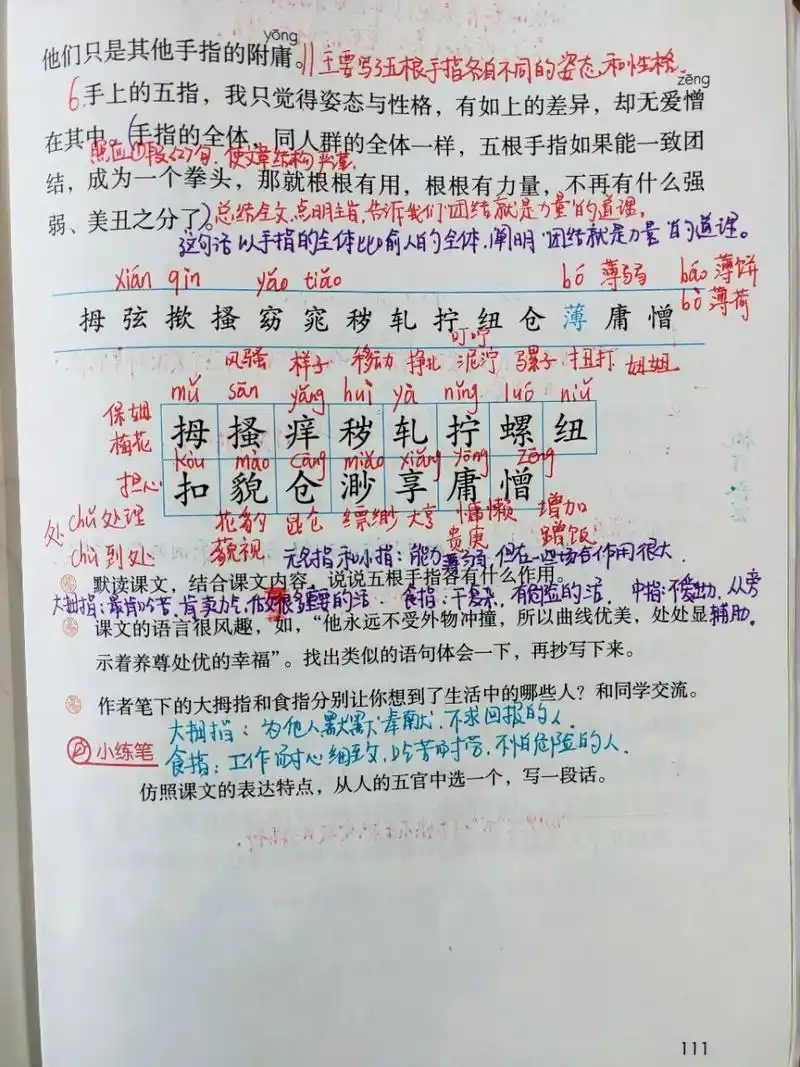 yōng
他们只是其他手指的附庸。∥主要写了五根手指各自不同的姿态和性格.
zēng
6.手上的五指，我只觉得姿态与性格，有如上的差异，却无爱憎
在其中。(手指的全体，同人群的全体一样，五根手指如果能一致团
照应①段②句.使文章结构严谨.
结，成为一个拳头，那就根根有用，根根有力量，不再有什么强
弱、美丑之分了。)总结全文,点明主旨,告诉我们"团结就是力量"的道理。
这句话以手指的全体比喻人的全体,阐明"团结就是力量"的道理。
xián qìn yǎo tiǎo bó 薄弱 báo 薄饼
bò 薄荷
拇 弦 揿 搔 窈 窕 秽 轧 拧 纽 仓 薄 庸 憎
叮咛
风骚 样子 移动 挣扎 泥泞 骡子 扭打 妞妞
mǔ sāo yǎng huì yà nǐng luó niǔ
保姆
梅花
拇 搔 痒 秽 轧 拧 螺 纽
kòu mào cāng miǎo xiǎng yōng zēng
担心
扣 貌 仓 渺 享 庸 憎
处 chǔ 处理 花豹 昆仑 缥缈 大亨 慵懒 增加
贵庚 蹭饭
chù 到处 藐视 无名指和小指：能力薄弱,但在一些场合作用很大.
默读课文，结合课文内容，说说五根手指各有什么作用。
大拇指：最肯吃苦,肯卖力气,做很多重要的活. 食指：干复杂,有危险的活. 中指：不爱出力,从旁
辅助.
课文的语言很风趣，如，“他永远不受外物冲撞，所以曲线优美，处处显
示着养尊处优的幸福”。找出类似的语句体会一下，再抄写下来。
作者笔下的大拇指和食指分别让你想到了生活中的哪些人？和同学交流。
大拇指：为他人默默奉献,不求回报的人.
小练笔
食指：工作耐心细致,吃苦耐劳,不怕危险的人.
仿照课文的表达特点，从人的五官中选一个，写一段话。
111